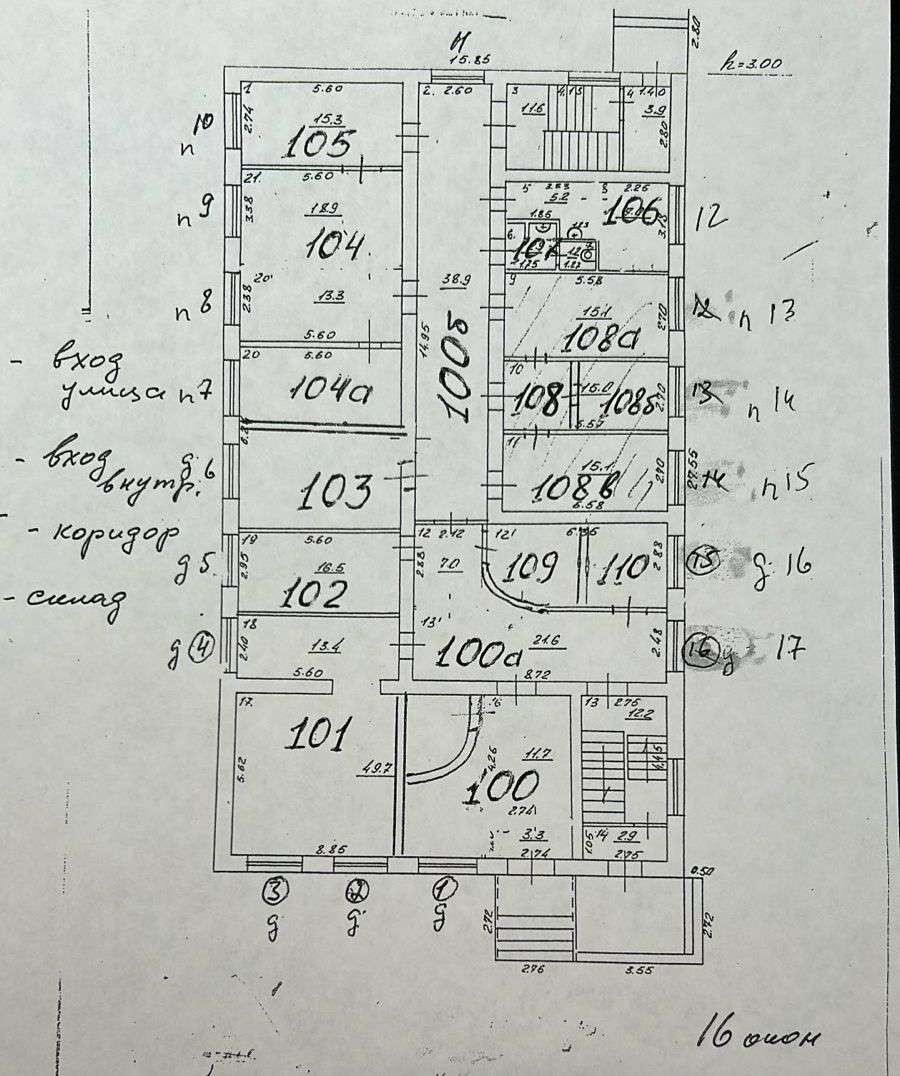 И
15.85
2.80
h=3.00
1
5.60
2.
2.60
3
4.15
4
1.40
10
п
2.74
15.3
105
11.6
3.9
2.80
21.
5.60
5
3.63
2.26
п 9
3.38
18.9
5.2
106
12
1.86
3.18
104
6.
107
1.75
1.27
20'
38.9
9
5.58
п 8
2.38
13.3
15.1
2.70
12
п 13
5.60
14.95
108а
- вход
20
5.60
10
улица п7
104а
100б
108
15.0
108б
2.70
13
п 14
5.57
6.21
11
- вход
д.
внутр. 6
103
15.1
2.70
27.55
108в
14
п15
5.58
- коридор
19
5.60
12
2.12
12'
6.36
д 5
2.95
16.5
2.88
7.0
109
110
2.88
15
д 16
102
- склад
18
13'
д 4
2.40
13.4
100а
21.6
2.48
16
д
17
5.60
8.72
17.
16
13
2.75
12.2
101
5.62
49.7
4.26
11.7
4.45
100
2.74
3.3
1.05
14
2.9
8.85
2.74
2.75
3
2
1
0.50
д
д
д
2.72
2.72
2.76
3.55
16 окон